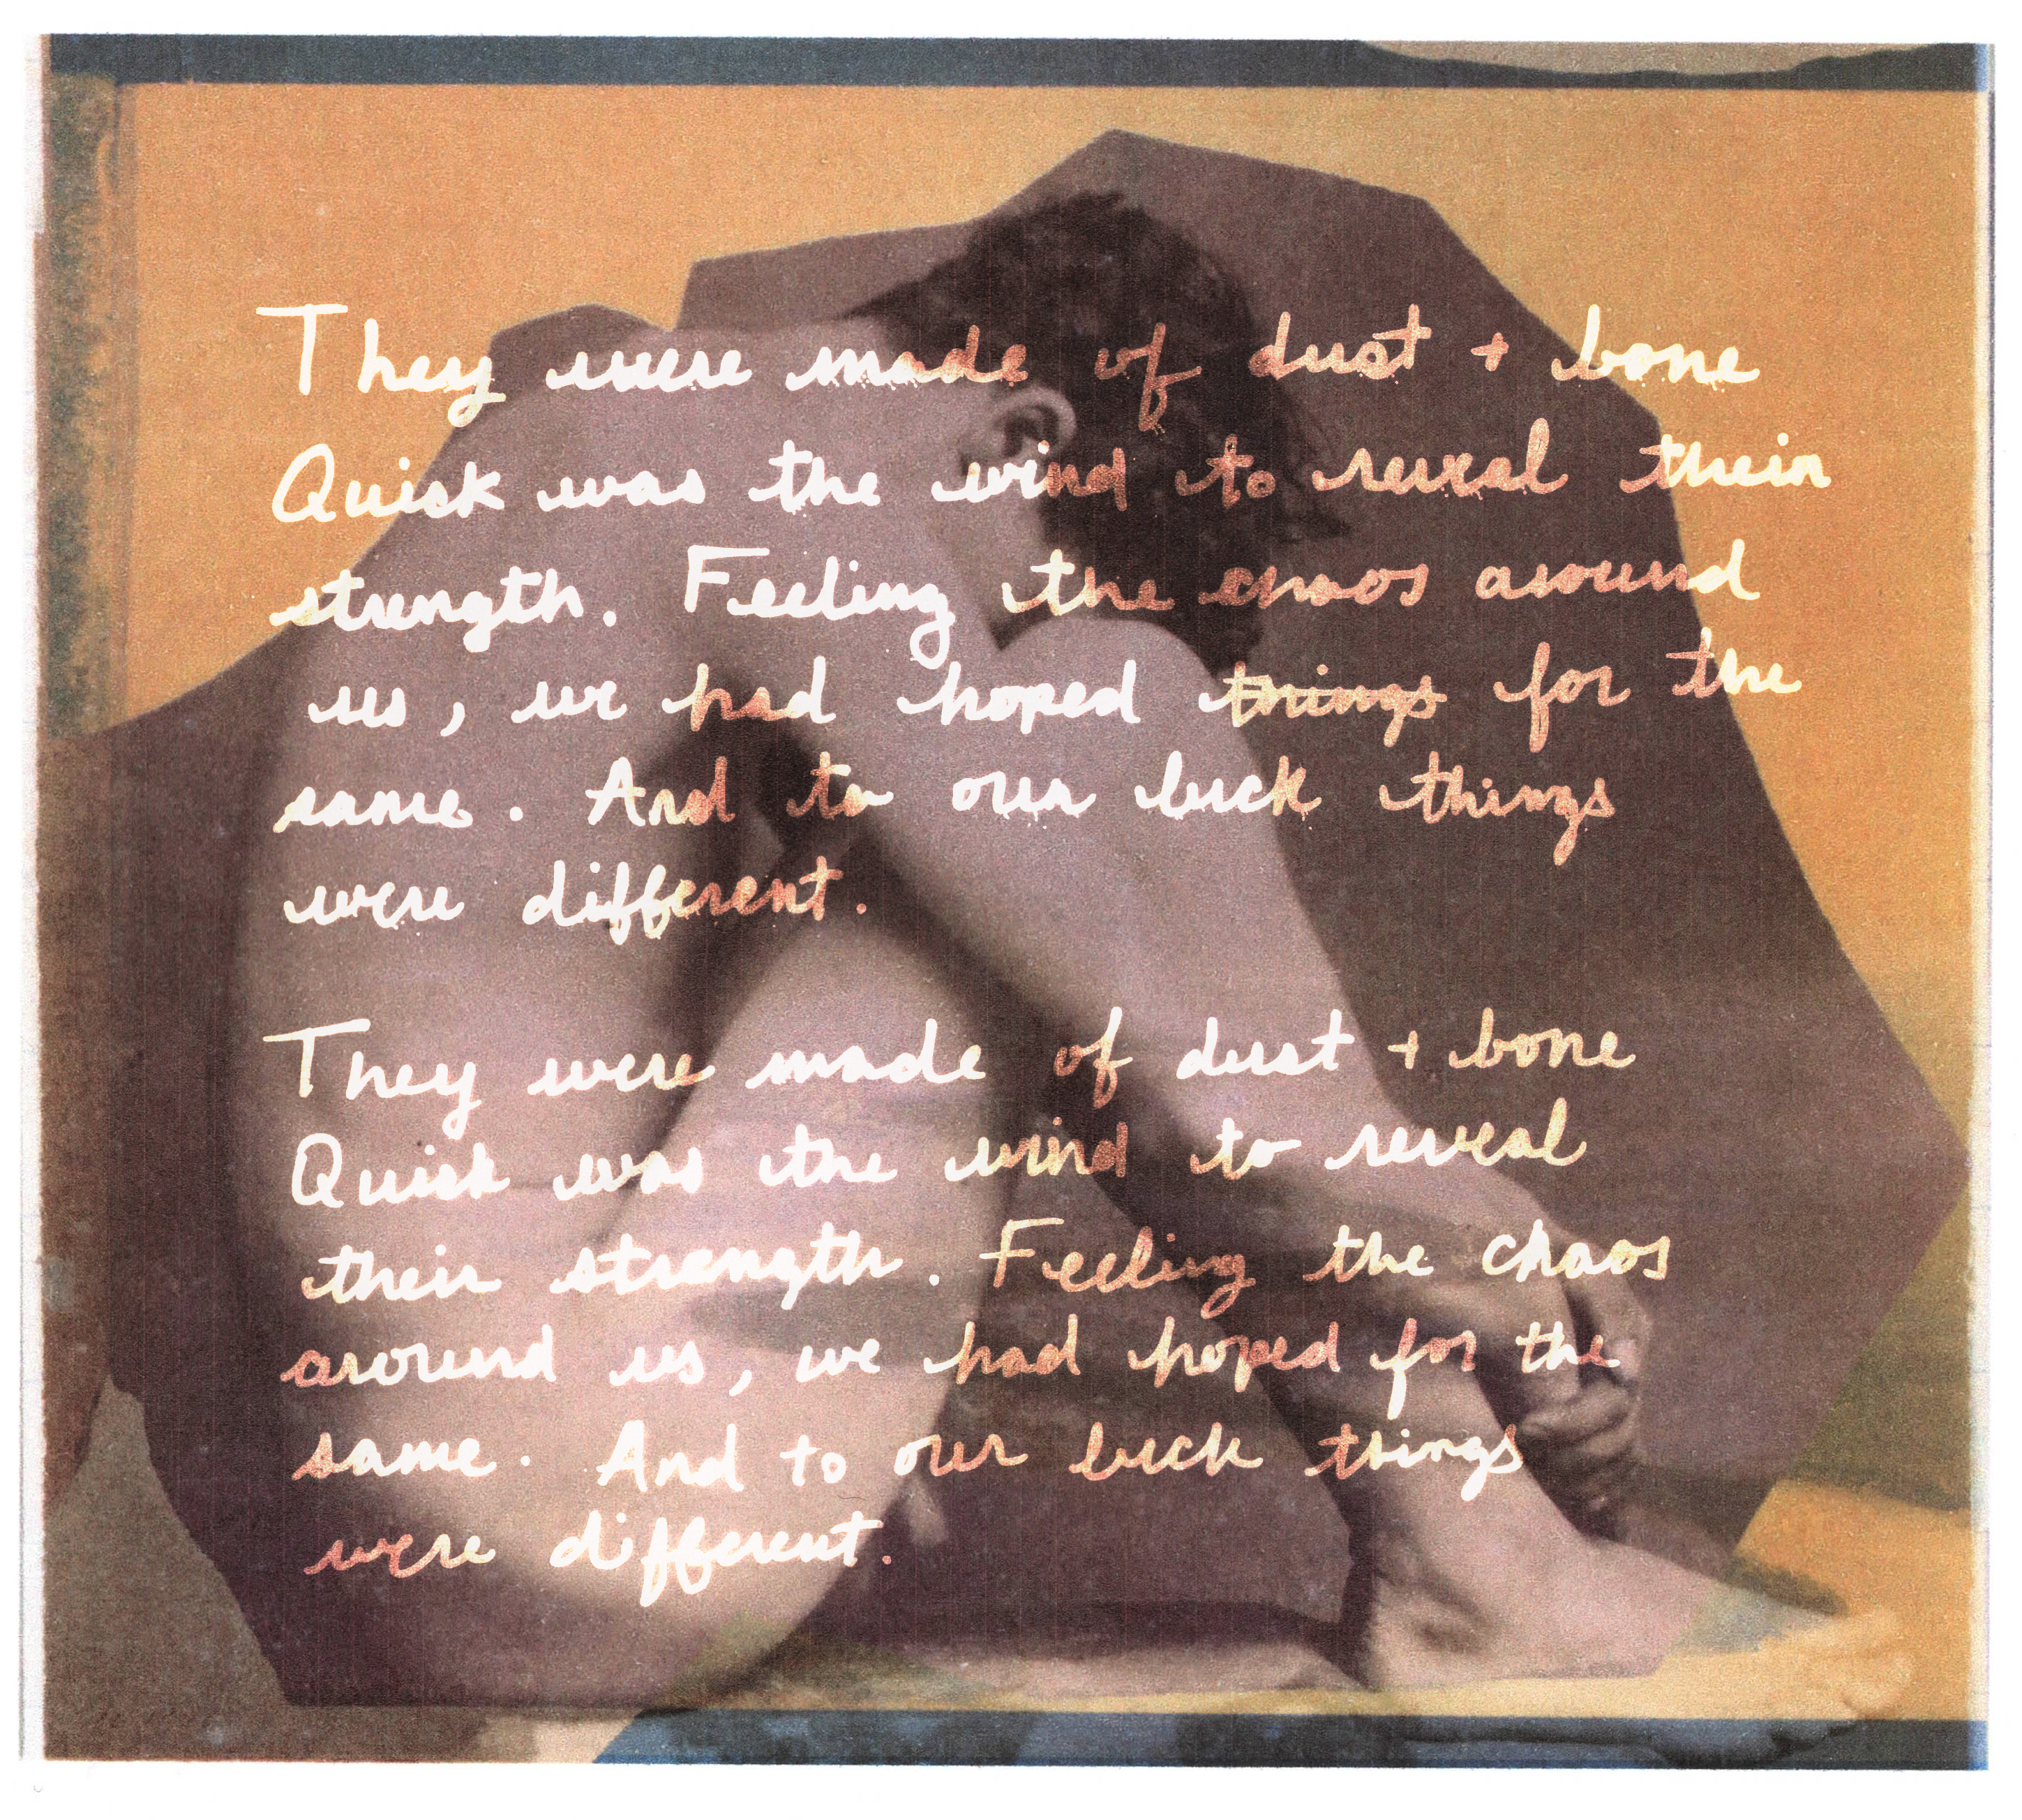 They were made of dust + bone
Quick was the wind to reveal their
strength. Feeling the chaos around
us, we had hoped things for the
same. And to our luck things
were different.
They were made of dust + bone
Quick was the wind to reveal
their strength. Feeling the chaos
around us, we had hoped for the
same. And to our luck things
were different.